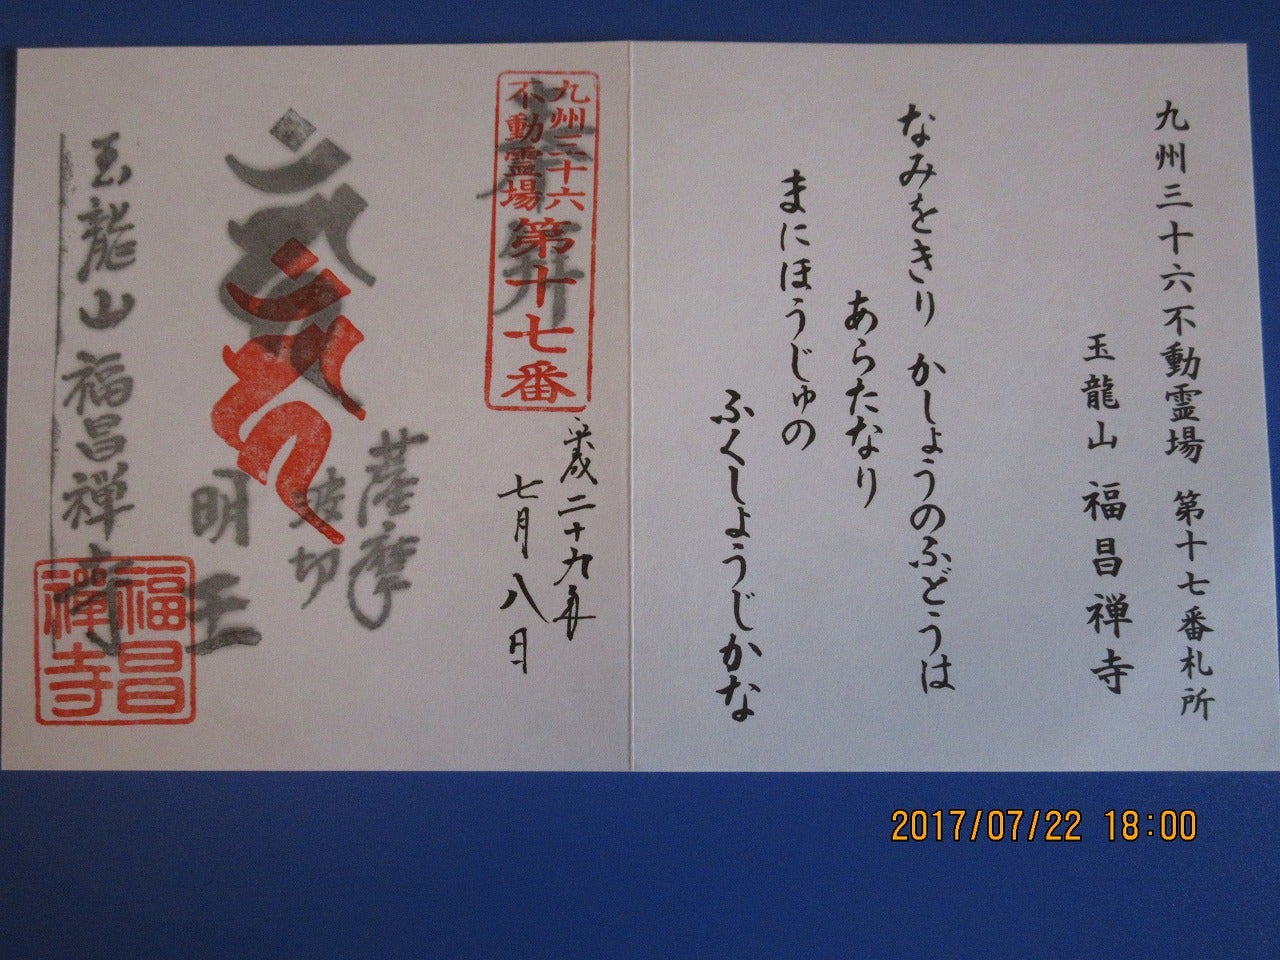 九州三十六不動霊場 第十七番札所
玉龍山 福昌禅寺
なみをきり かしょうのふどうは
あらたなり
まにほうじゅの
ふくしょうじかな
奉拝
九州三十六
不動霊場
第十七番
平成二十九年
七月八日
薩摩
波切
明王
玉龍山 福昌禅寺
福昌
禪寺
2017/07/22 18:00